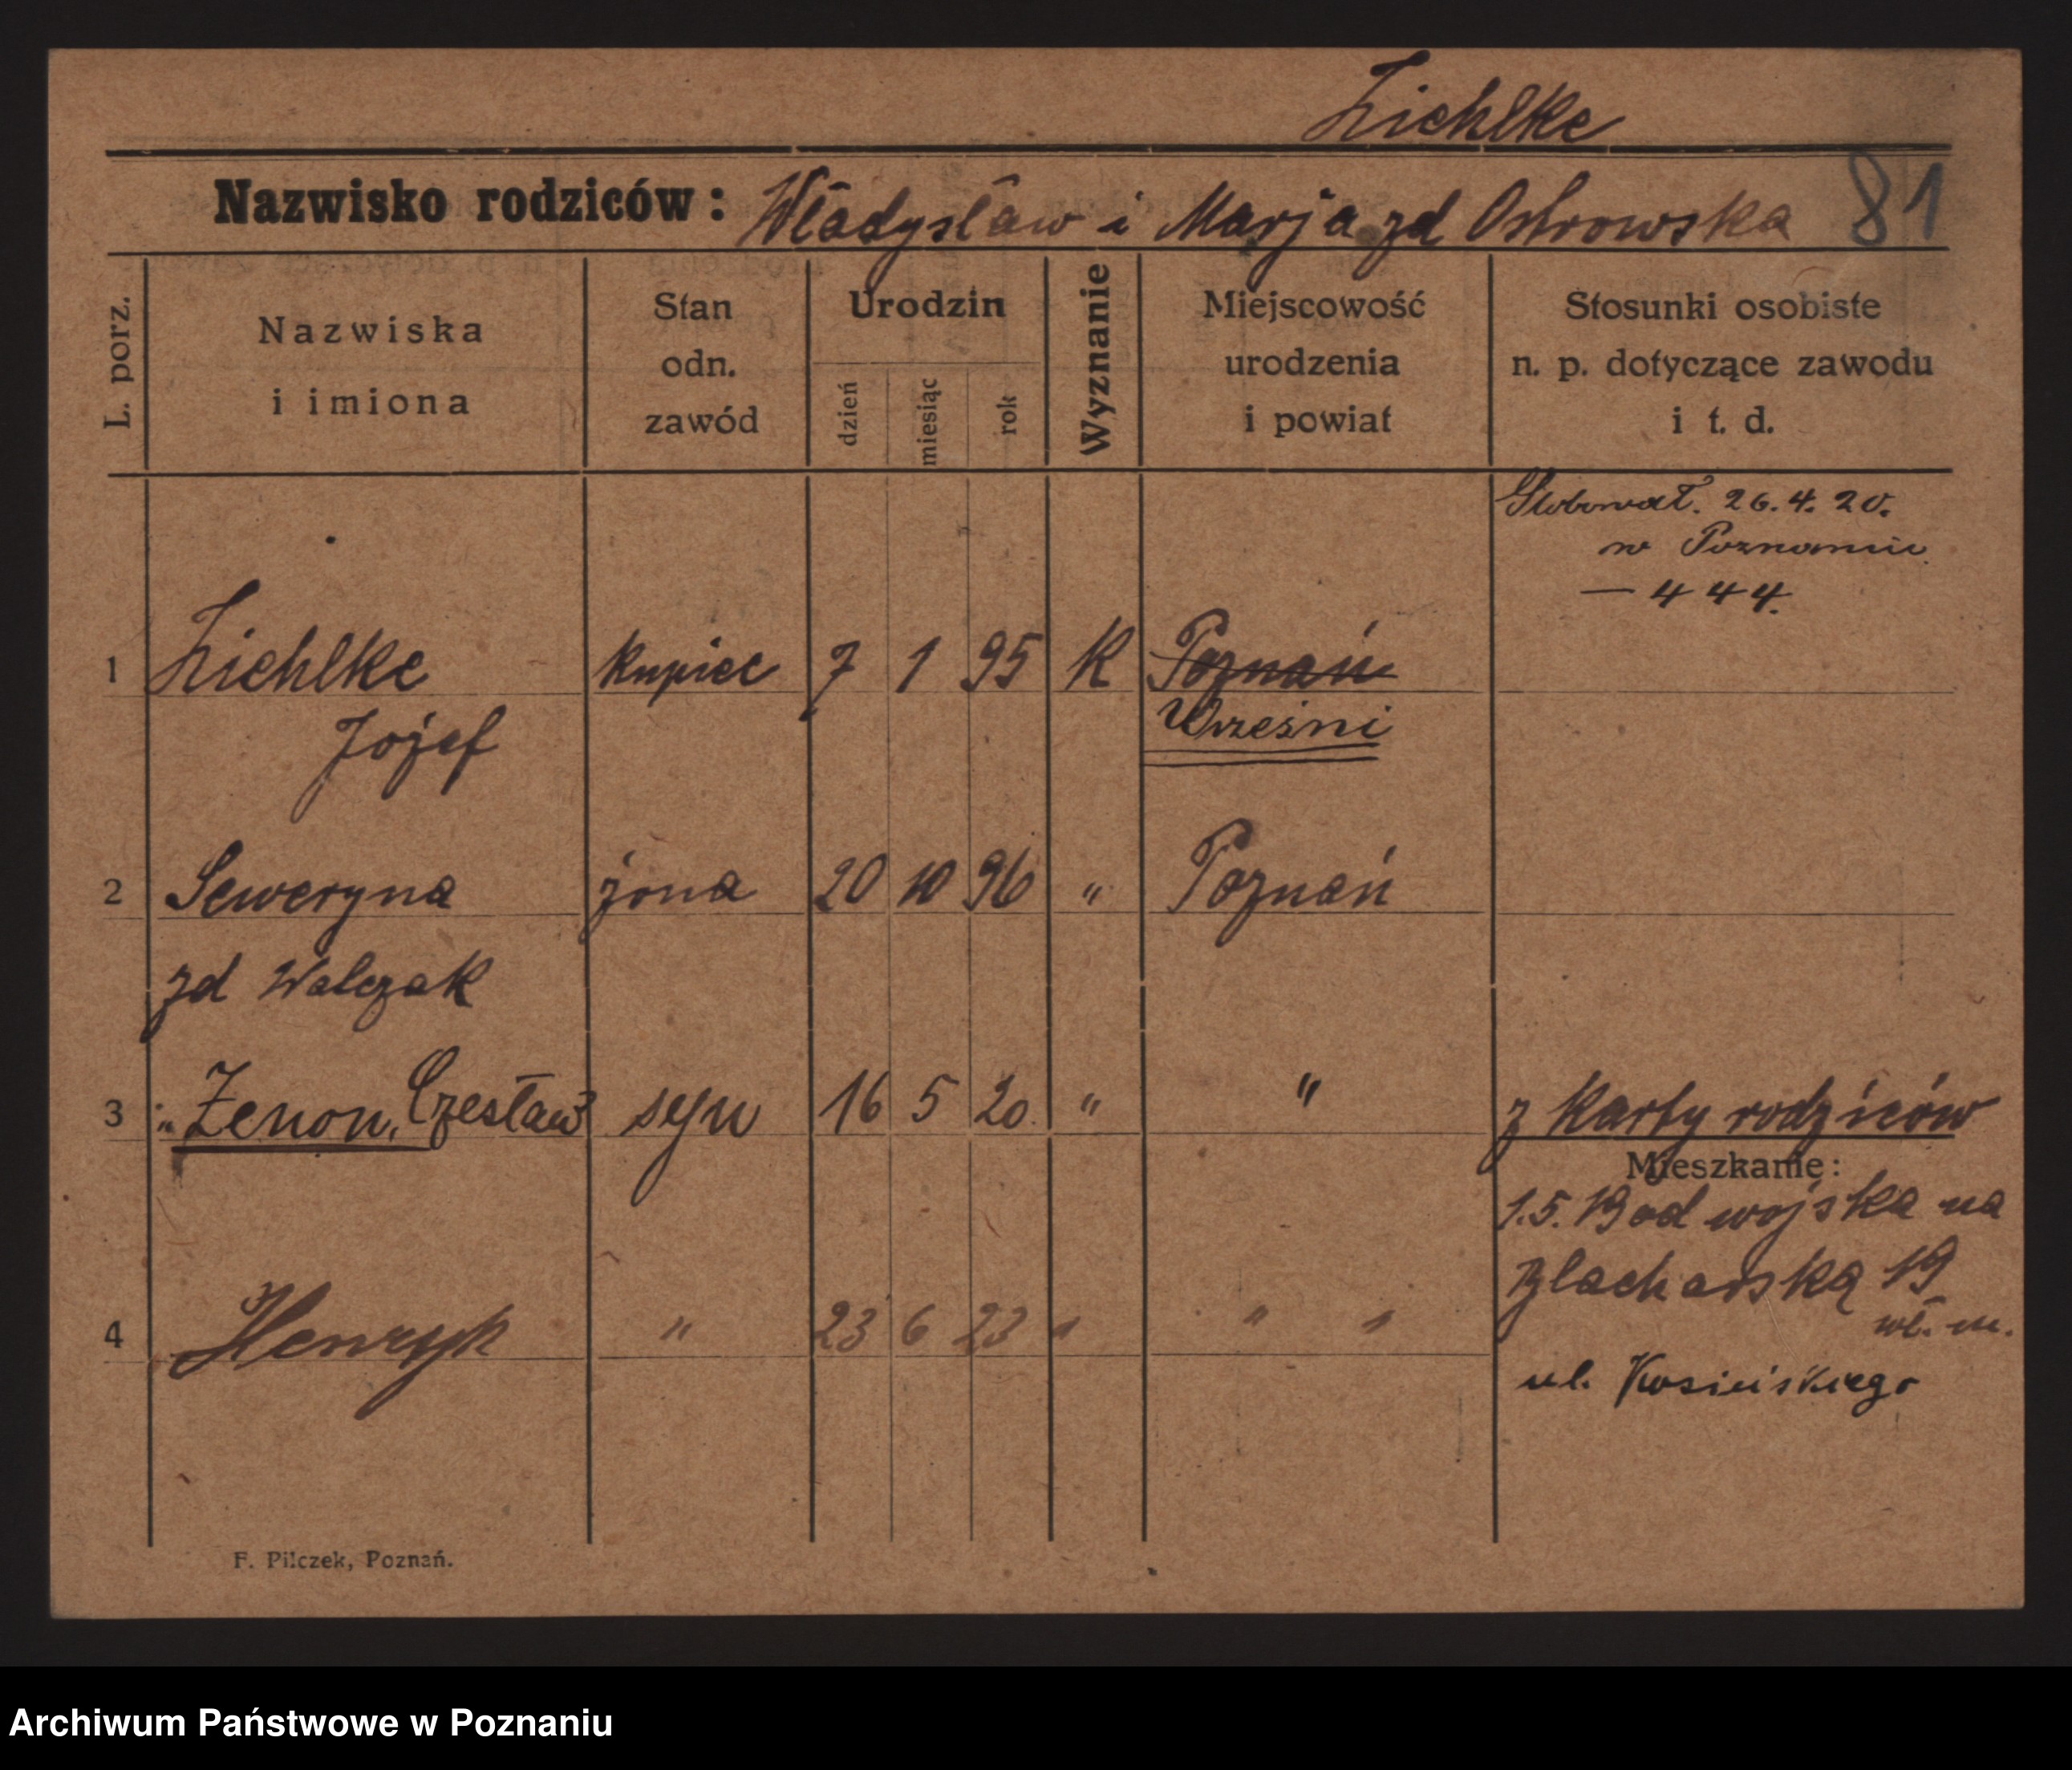 Zichlke
Nazwisko rodziców: Władysław i Marja zd Ostrowska 81
L. porz. Nazwiska i imiona Stan odn. zawód Urodzin dzień miesiąc rok Wyznanie Miejscowość urodzenia i powiat Stosunki osobiste n. p. dotyczące zawodu i t. d.
Ślubował. 26.4.20.
w Poznaniu
— 444.
1 Zichlke kupiec 7 1 95 K Poznań
Józef Wrześni
2 Seweryna żona 20 10 96 " Poznań
zd Walczak
3 " Zenon, Czesław syn 16 5 20 " " z karty rodziców
Mieszkanie:
1.5.19 od wojska na
Blacharską 19
wł. m.
4 Henryk " 23 6 23 " " "
ul. Kosińskiego
F. Pilczek, Poznań.
Archiwum Państwowe w Poznaniu